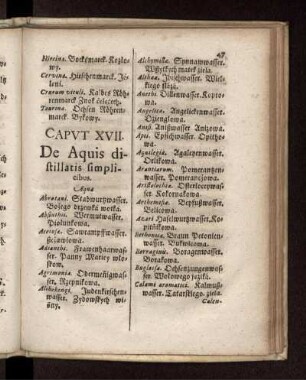 47
Hircina. Bocksmarck. Kozło-
wy.
Cervina. Hirschenmarck. Je-
leni.
Crurum vituli. Kalbes Röh-
renmarck
Taurina. Ochsen Röhren-
marck. Bykowy.
CAPUT XVII.
De Aquis di-
stillatis simpli-
cibus.
Aqua
Abrotani. Stabwurtzwasser.
Bożego drzewka wodka.
Absinthii. Wermutwasser.
Piołunkowa.
Acetosæ. Sawrampffwasser.
Szczawiowa.
Adianthi. Frauenhaarwas-
ser. Panny Maryey wło-
skow.
Agrimoniæ. Odermenigwas-
ser. Rzepnikowa.
Alkekengi. Judenkirschen-
wasser. Zydowskych wi-
śni.
Alchymillæ. Synnawwasser.
Wßytkych matek ziela.
Althææ. Jbischwasser. Wiel-
kiego ślázu.
Anethi. Dillenwasser. Koprо-
wa.
Angelicæ. Angelickenwasser.
Dzięnglowa.
Anisi. Anißwasser. Anÿzowa.
Apii. Epichwasser. Opichо-
wa.
Aquilegiæ. Agaleyenwasser.
Orlikowa.
Arantiorum. Pomerantzen-
wasser. Pomeranzowa.
Aristolochiæ. Osterlucyewas-
ser Kokornakowa.
Arthemisiæ. Beyfußwasser.
Belicowa.
Asari Haselwurtzwasser. Ko-
pitnikowa.
Bethonicæ. Braun Betonien-
wasser. Bukwicowa.
Borraginis. Boragenwasser.
Borakowa.
Buglossæ. Ochsenzungenwas-
ser. Wolowego języka.
Calami aromatici. Kalmuß-
wasser. Tatarskiego. ziela.
Calen-